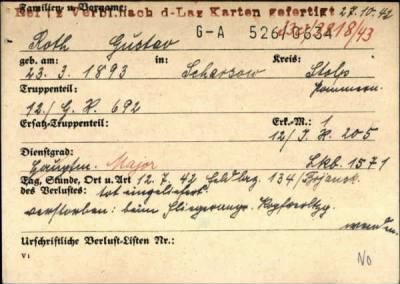 Bei Verbl.nach d-Laz Karten gefertigt 27.10.42
Familien- u. Vorname:
Roth Gustav
G-A 526/0634
geb. am: in: Kreis:
23. 3. 1893 Scharsow Stolp
Truppenteil: Pommern.
12./G. R. 692
Ersatz-Truppenteil: Erk.-M.: 1
12/I. R. 205
Dienstgrad: Lkb. 1571
Hauptm. Major
Tag, Stunde, Ort u. Art 12. 7. 42 Feldlaz. 134/
des Verlustes: tot eingeliefert.
verstorben: beim Fliegerangr.
wenden
Urschriftliche Verlust-Listen Nr.:
VI No